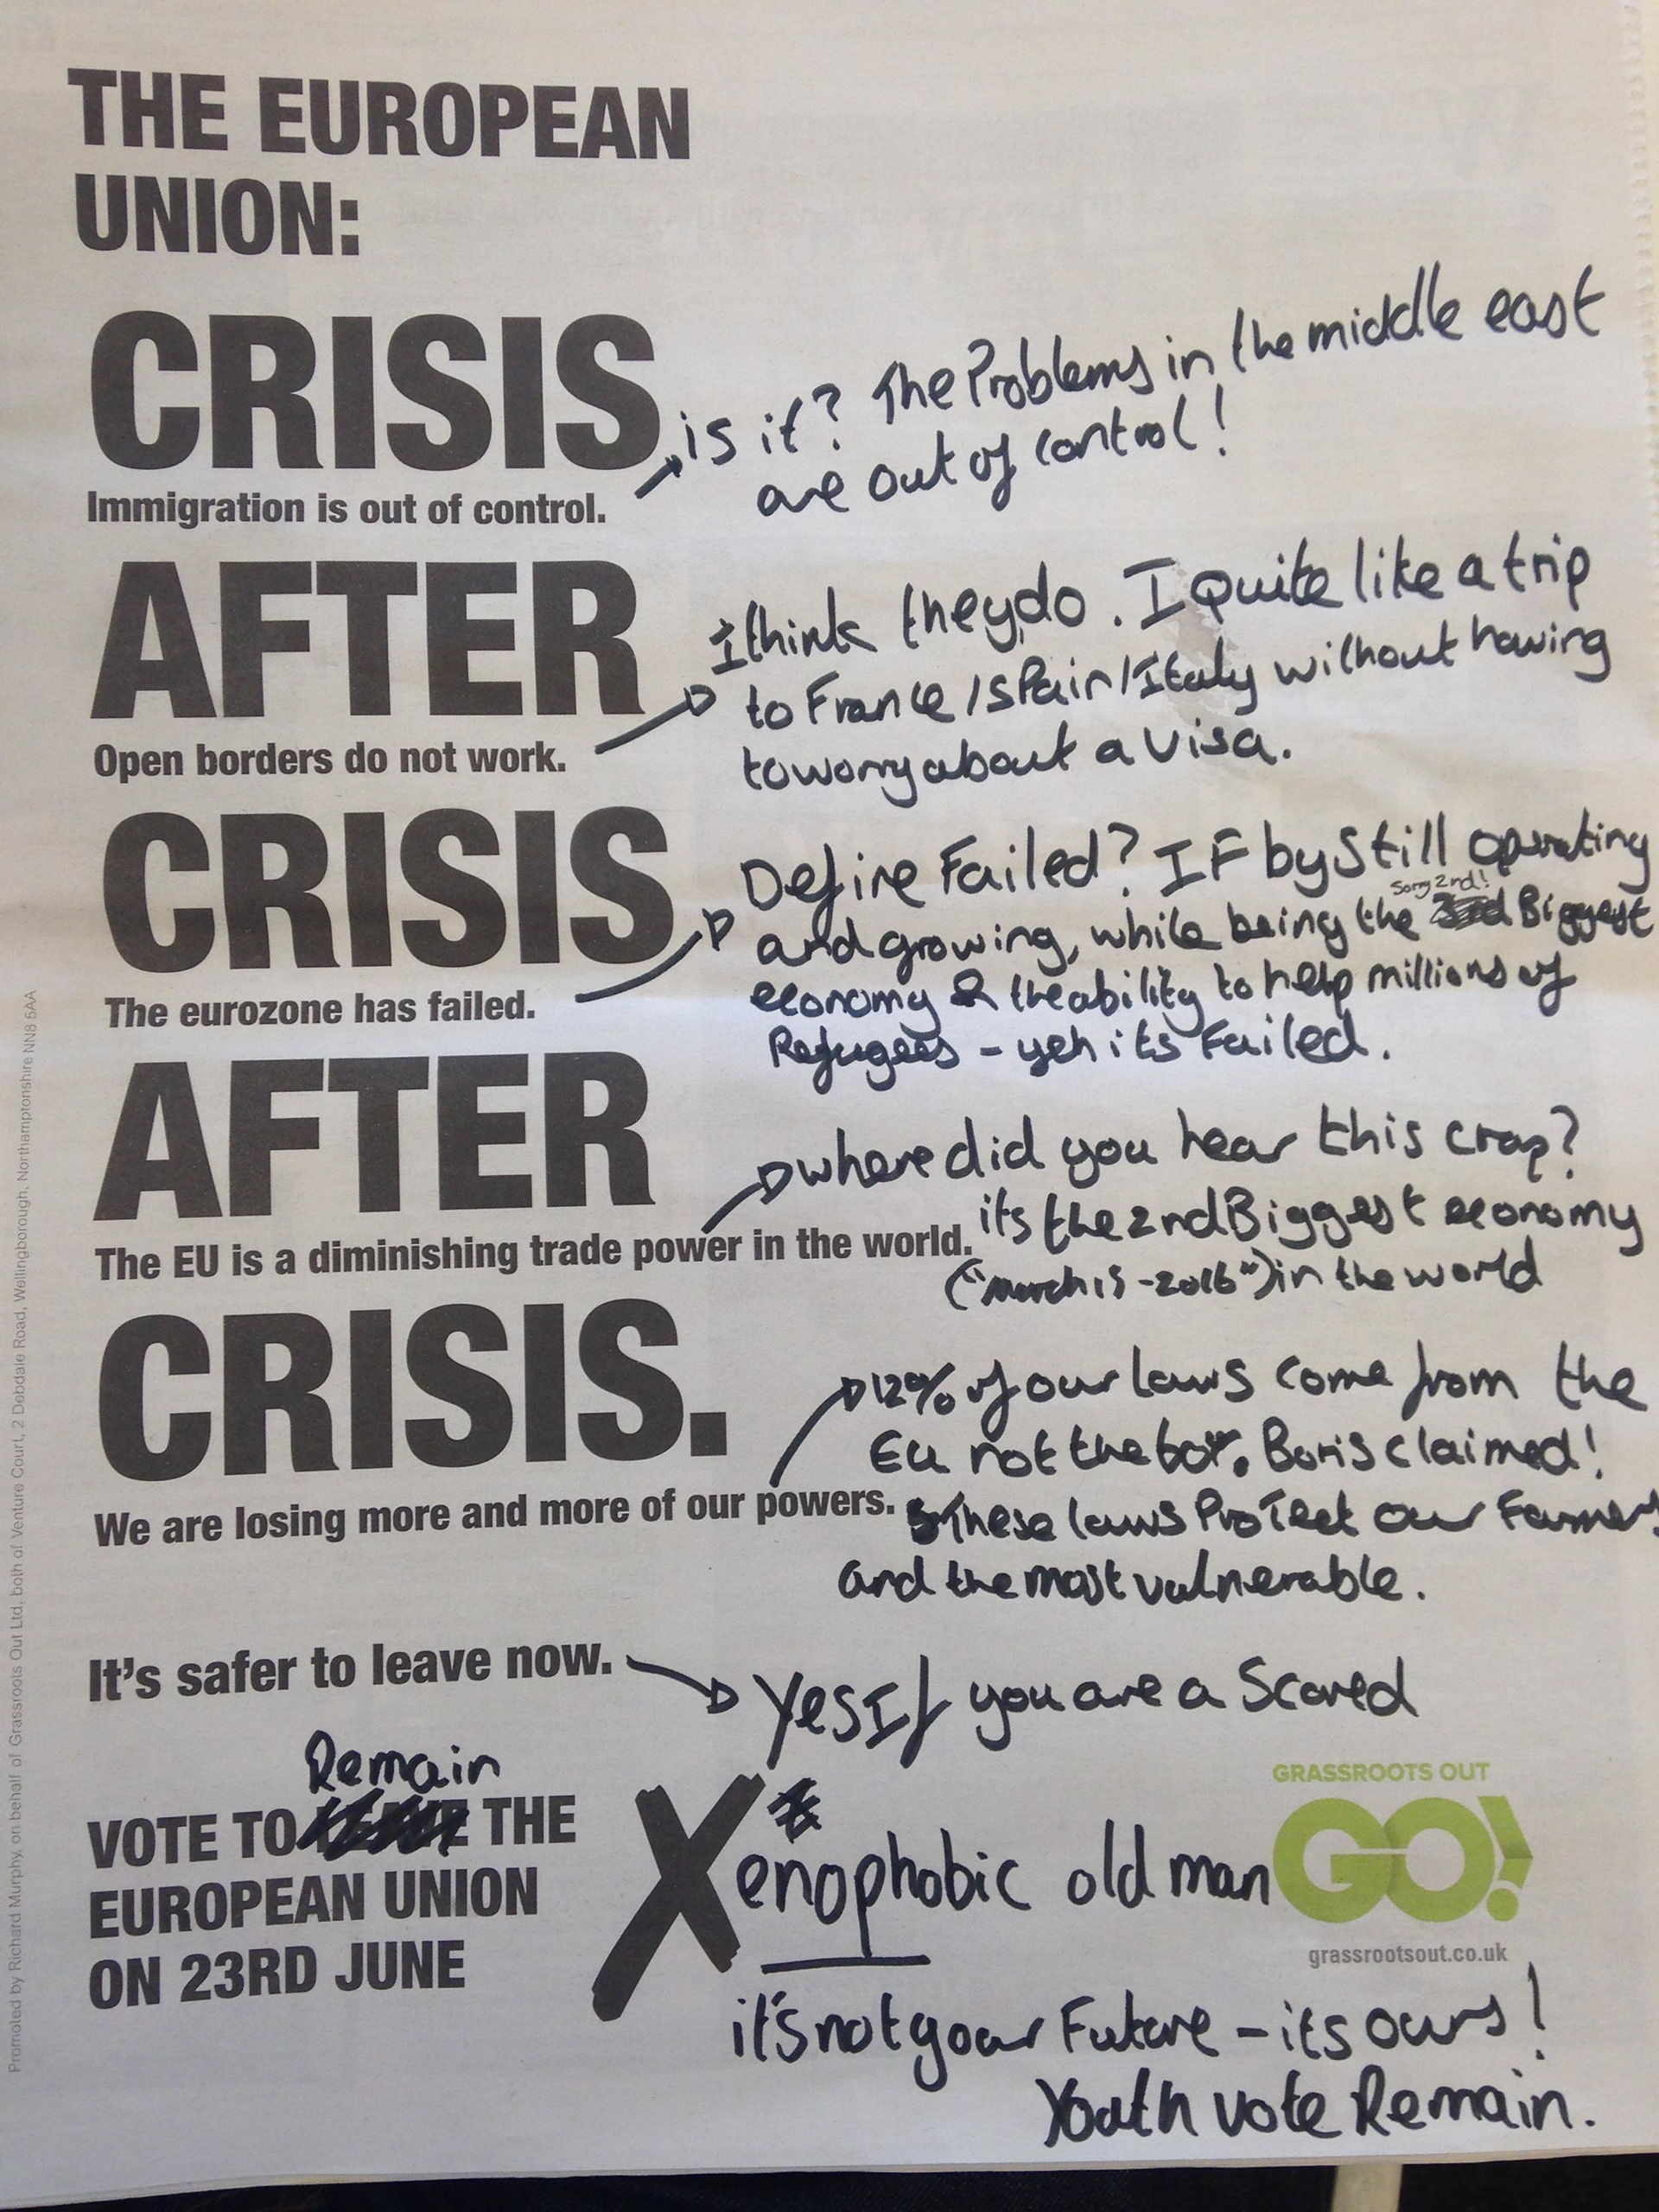 THE EUROPEAN
UNION:
CRISIS
is it? The Problems in the middle east
are out of control!
Immigration is out of control.
AFTER
I think they do. I Quite like a trip
to France / Spain / Italy without having
to worry about a visa.
Open borders do not work.
CRISIS
Define Failed? IF by Still operating
Sorry 2nd!
and growing, while being the Biggest
economy & the ability to help millions of
Refugees - yeh its Failed.
The eurozone has failed.
AFTER
where did you hear this crap?
its the 2nd Biggest economy
("march 15 - 2016") in the world
The EU is a diminishing trade power in the world.
CRISIS.
12% of our laws come from the
EU not the 60%. Boris claimed!
These laws Protect our Farmers
and the most vulnerable.
We are losing more and more of our powers.
It's safer to leave now.
Yes If you are a Scared
Xenophobic old man
Remain
VOTE TO LEAVE THE
EUROPEAN UNION
ON 23RD JUNE
GRASSROOTS OUT
GO!
grassrootsout.co.uk
it's not your Future - its ours!
Youth vote Remain.
Promoted by Richard Murphy, on behalf of Grassroots Out Ltd, both of Venture Court, 2 Debdale Road, Wellingborough, Northamptonshire NN8 5AA